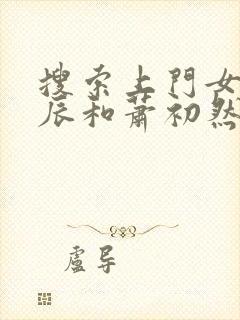 搜索上門女
辰和蕭初然
盧导